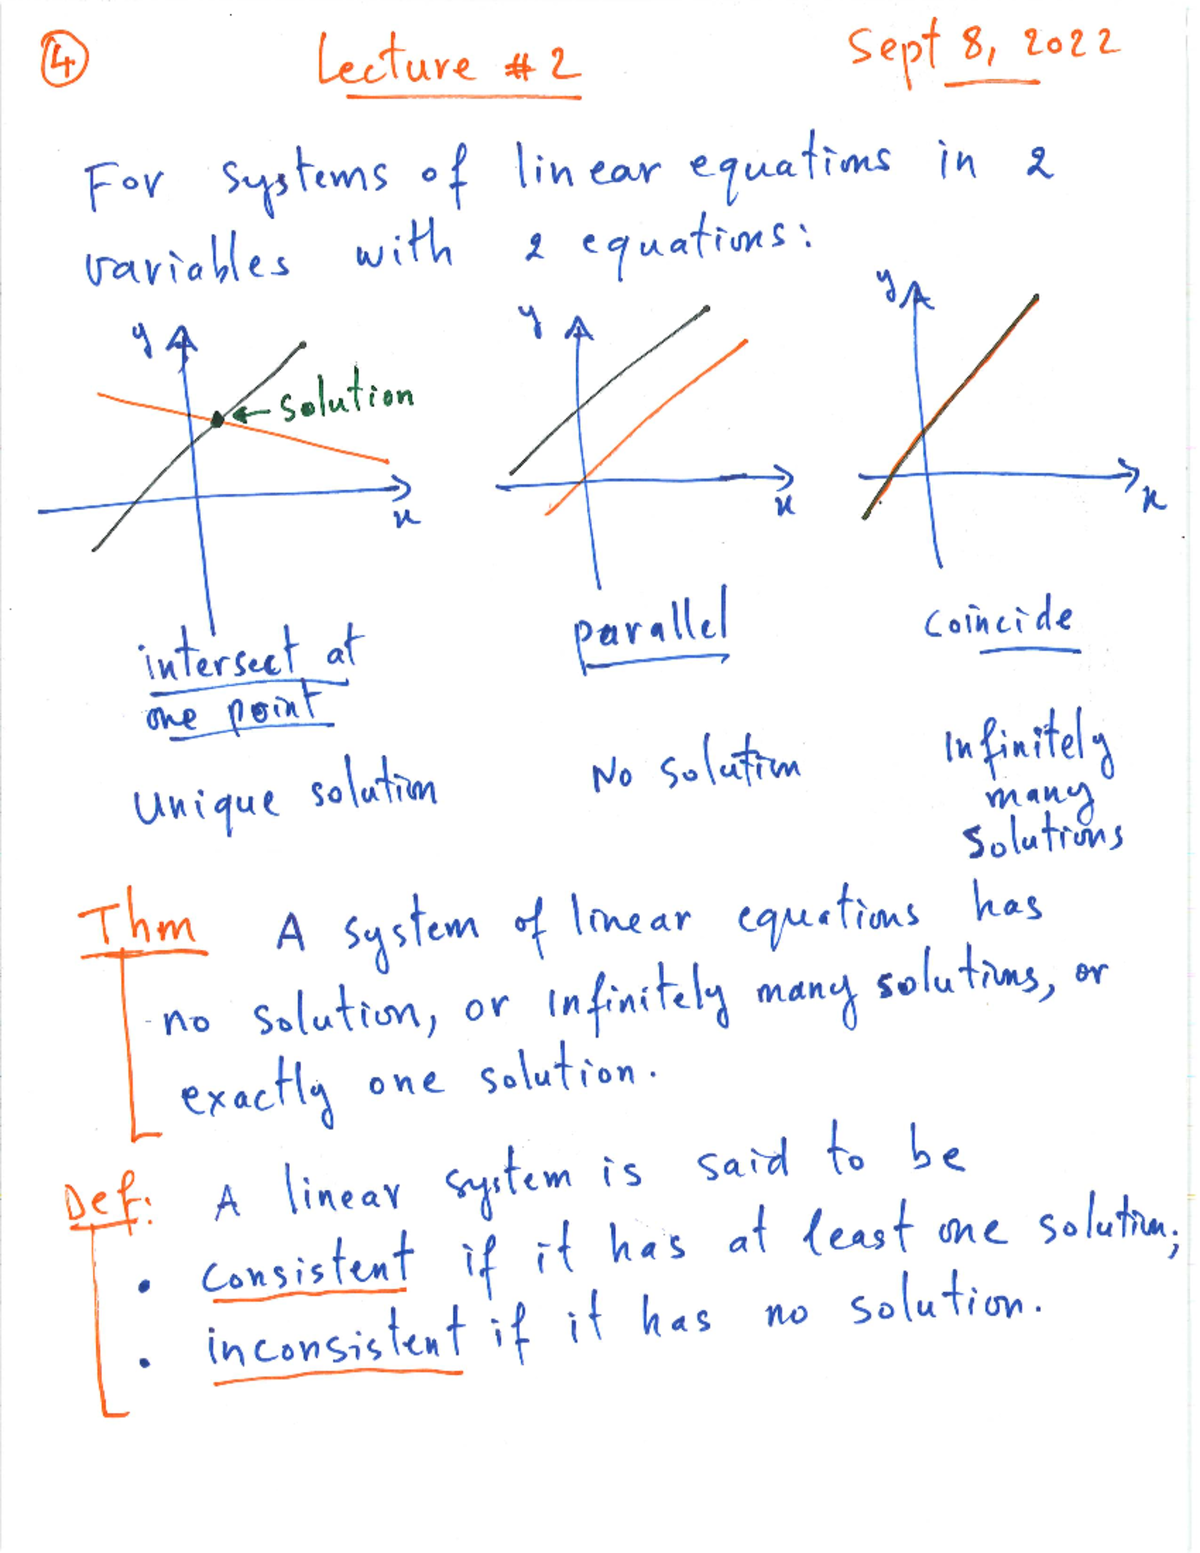 4 Lecture # 2 Sept 8, 2022
For systems of linear equations in 2
variables with 2 equations:
y y y
← solution
x x x
intersect at parallel coincide
one point
Unique solution No solution Infinitely
many
solutions
Thm A system of linear equations has
no solution, or infinitely many solutions, or
exactly one solution.
Def: A linear system is said to be
• consistent if it has at least one solution;
• inconsistent if it has no solution.